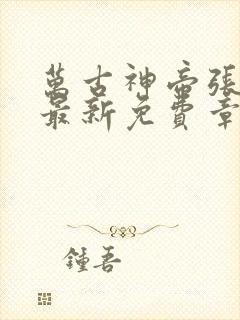 萬古神帝張
最新免費章
鍾吾